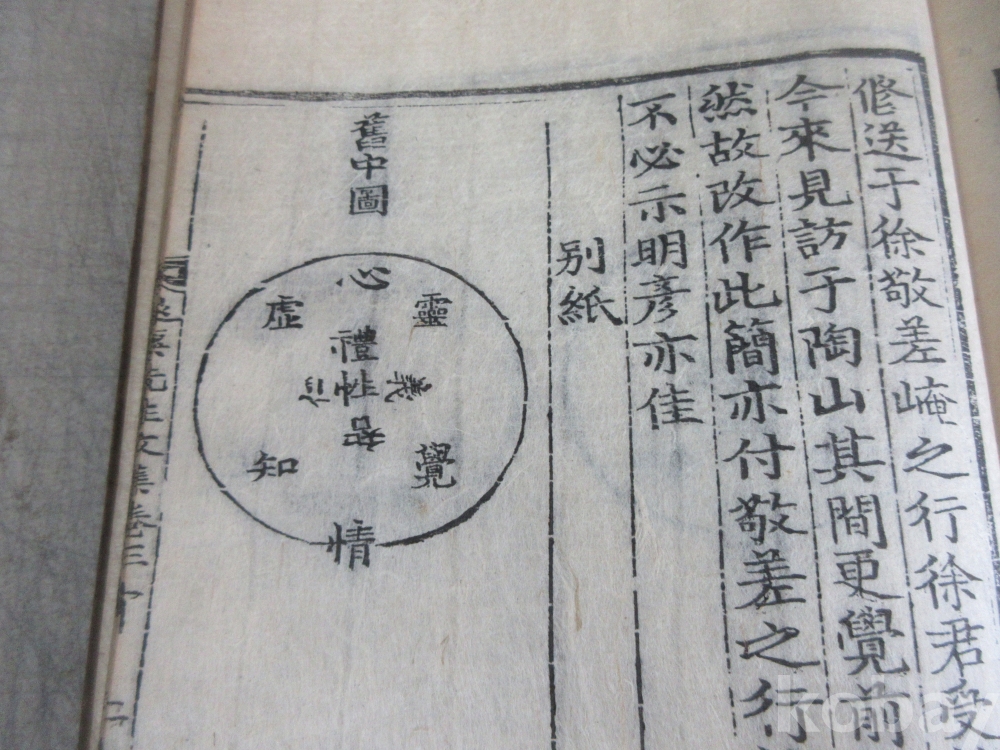 修送于徐敬差崦之行徐君受
今來見訪于陶山其間更覺前
然故改作此簡亦付敬差之行
不必示明彦亦佳
別紙
舊中圖
心
靈
虛
禮
義
性
仁
智
覺
知
情
先生文集卷三十
koba